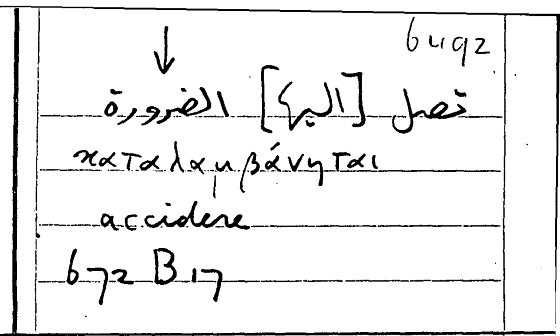 6492
↓
تصل [اليها] الضرورة
καταλαμβάνηται
accidere
672 B 17